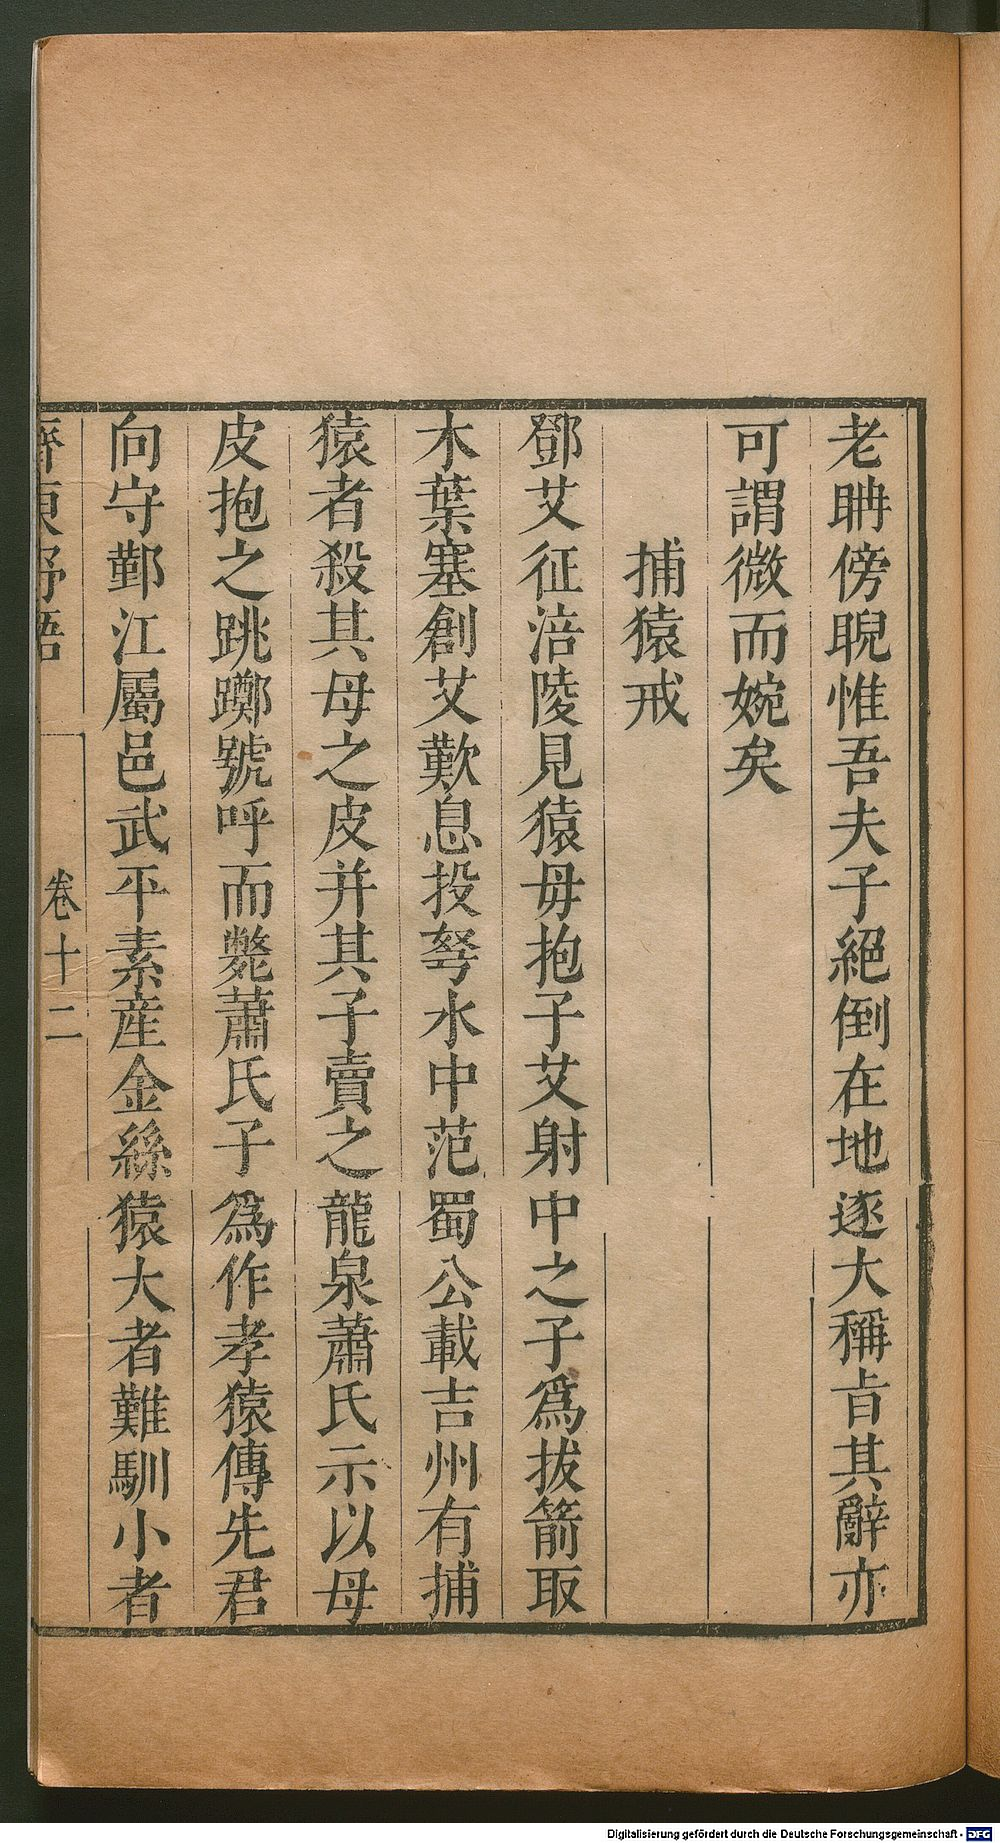 老聃傍睨惟吾夫子絕倒在地遂大稱㫖其辭亦
可謂微而婉矣
捕猿戒
鄧艾征涪陵見猿毋抱子艾射中之子爲拔箭取
木葉塞創艾歎息投弩水中范蜀公載吉州有捕
猿者殺其母之皮并其子賣之龍泉蕭氏示以母
皮抱之跳躑號呼而斃蕭氏子爲作孝猿傳先君
向守鄞江屬邑武平素産金絲猿大者難馴小者
齊東野語
卷十二
Digitalisierung gefördert durch die Deutsche Forschungsgemeinschaft - DFG